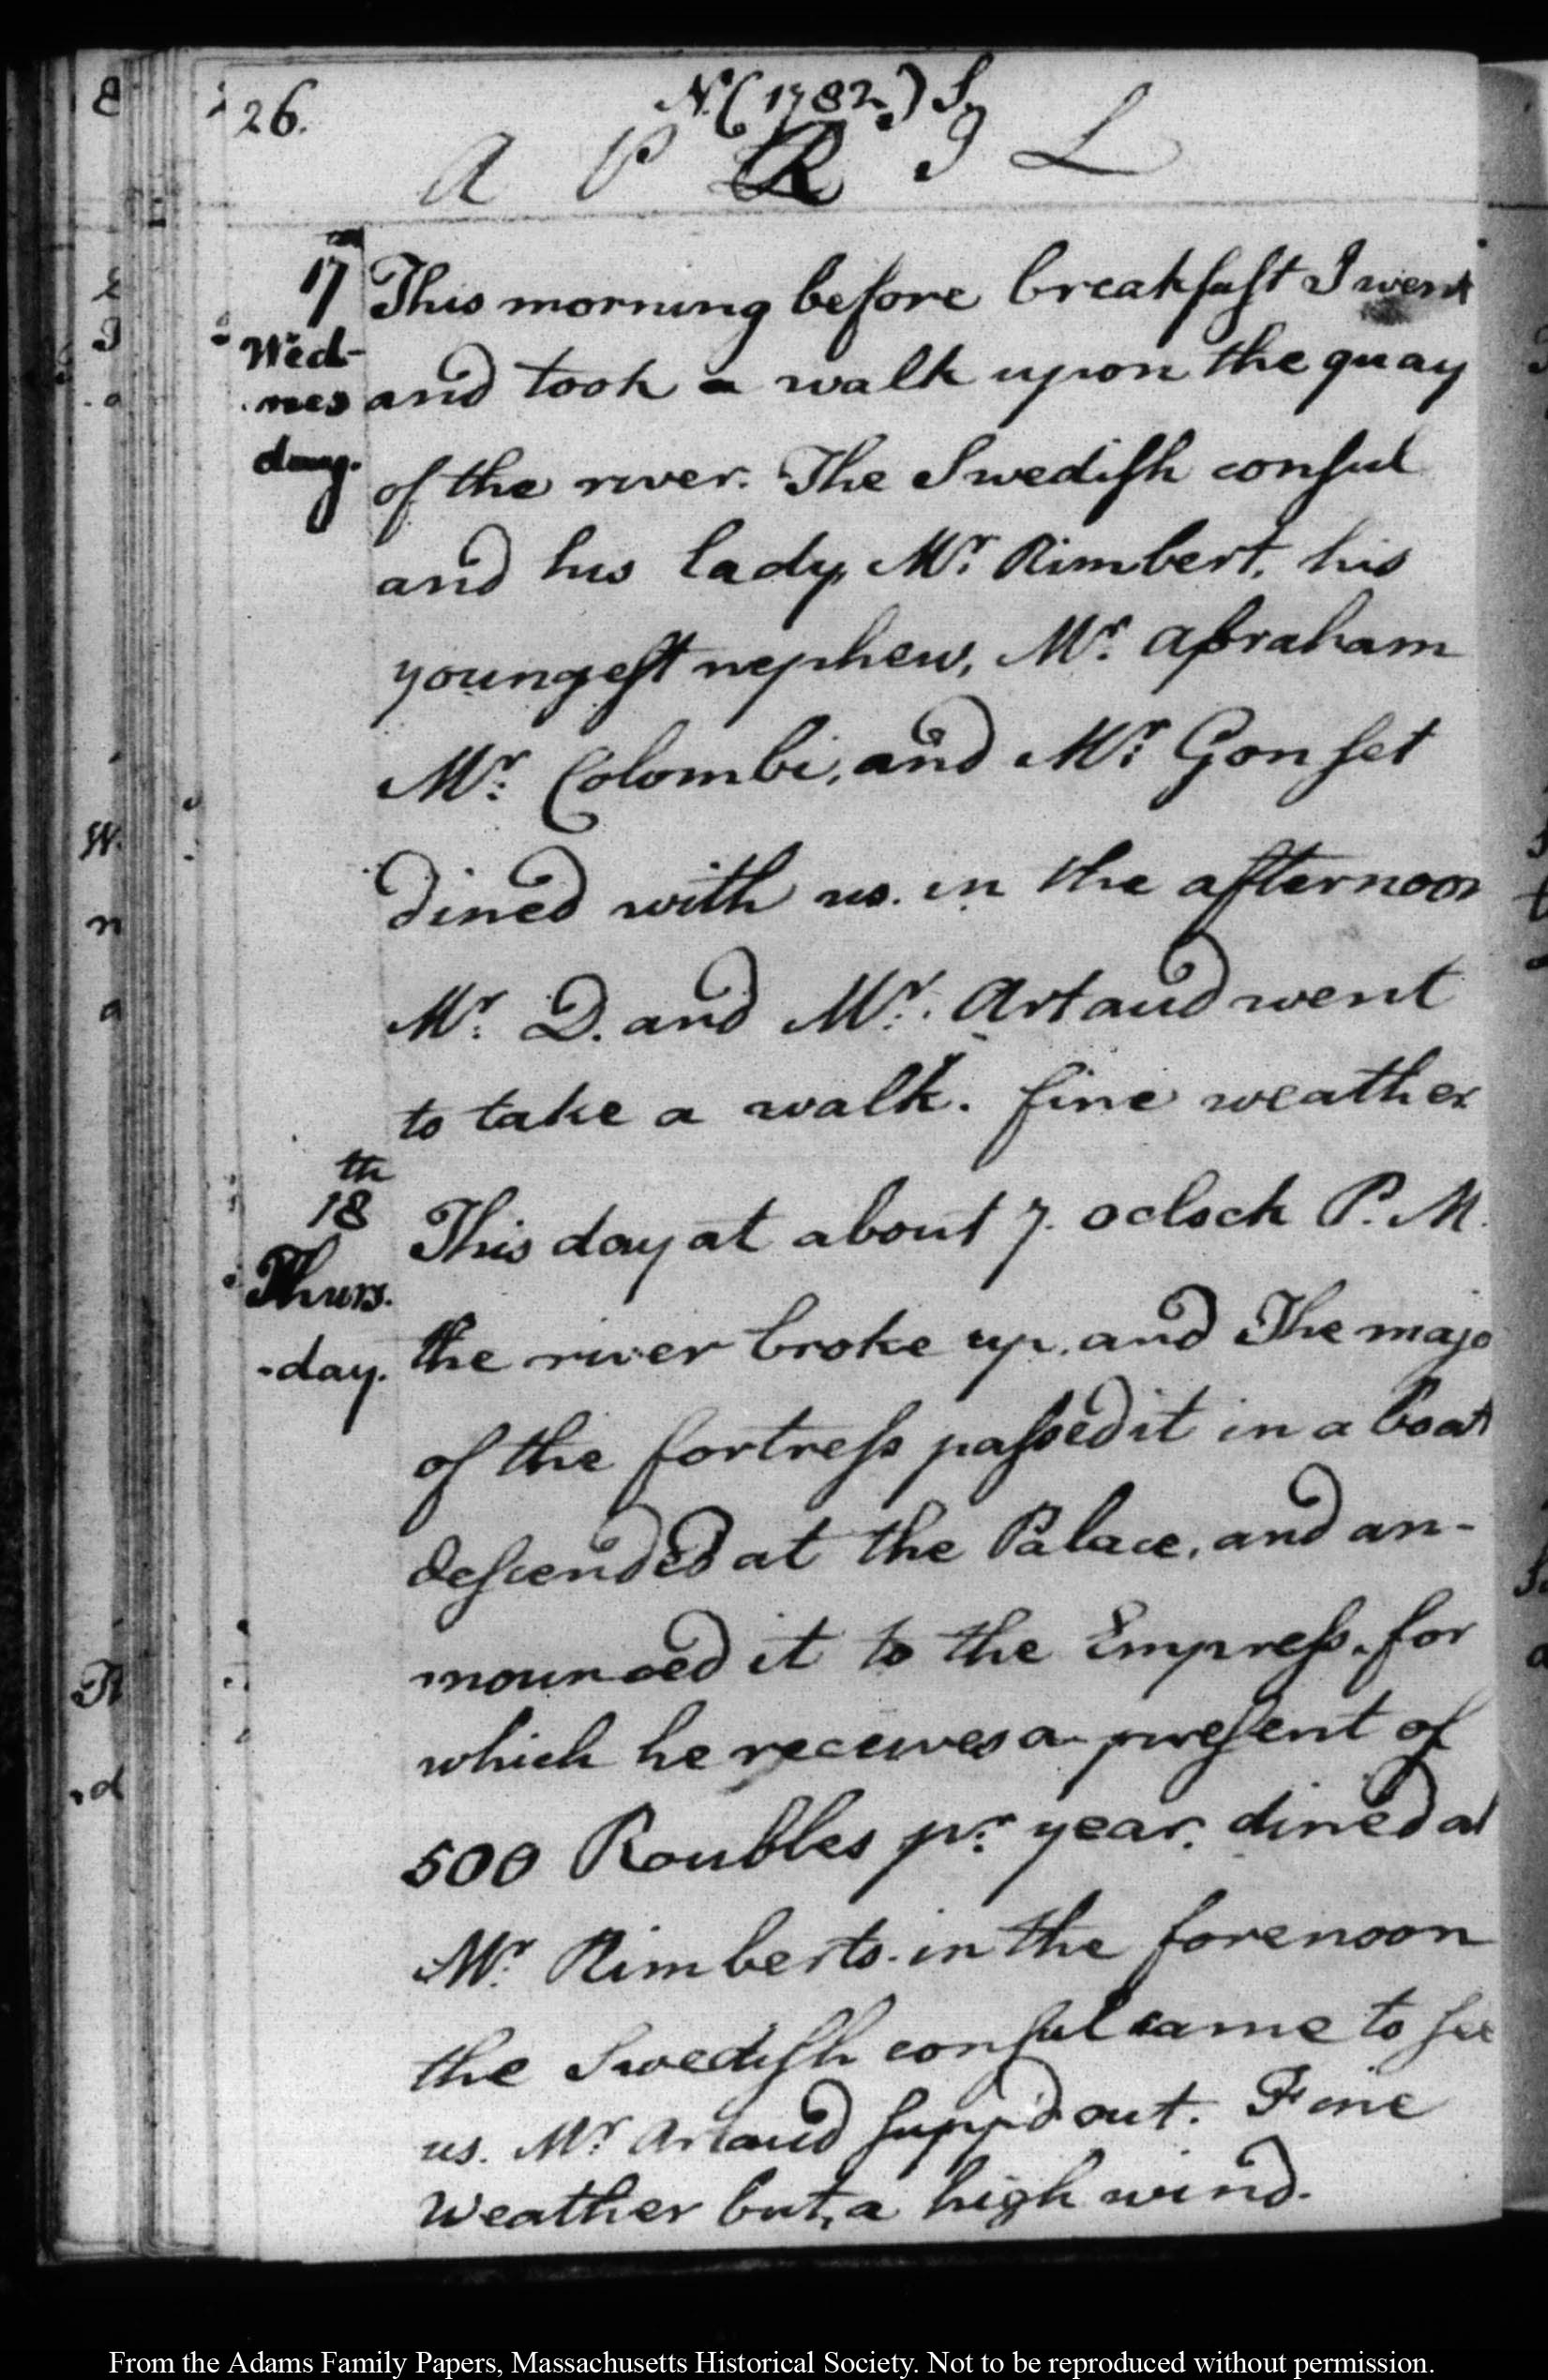 26.
N.(1782.)S.
A P R I L
17
Wed-
nes
day.
This morning before breakfast I went
and took a walk upon the quay
of the river. The Swedish consul
and his lady, Mr. Rimbert, his
youngest nephew, Mr. Abraham
Mr. Colombi, and Mr. Gonset
dined with us. in the afternoon
Mr. D. and Mr. Artaud went
to take a walk. fine weather
18th
Thurs.
-day.
This day at about 7. oclock P. M.
the river broke up. and The majo
of the fortress passed it in a boat
descended at the Palace, and an-
nounced it to the Empress. for
which he receives a present of
500 Roubles pr. year. dined at
Mr. Rimberts. in the forenoon
the Swedish consul came to see
us. Mr. Artaud supp'd out. Fine
Weather but, a high wind.
From the Adams Family Papers, Massachusetts Historical Society. Not to be reproduced without permission.